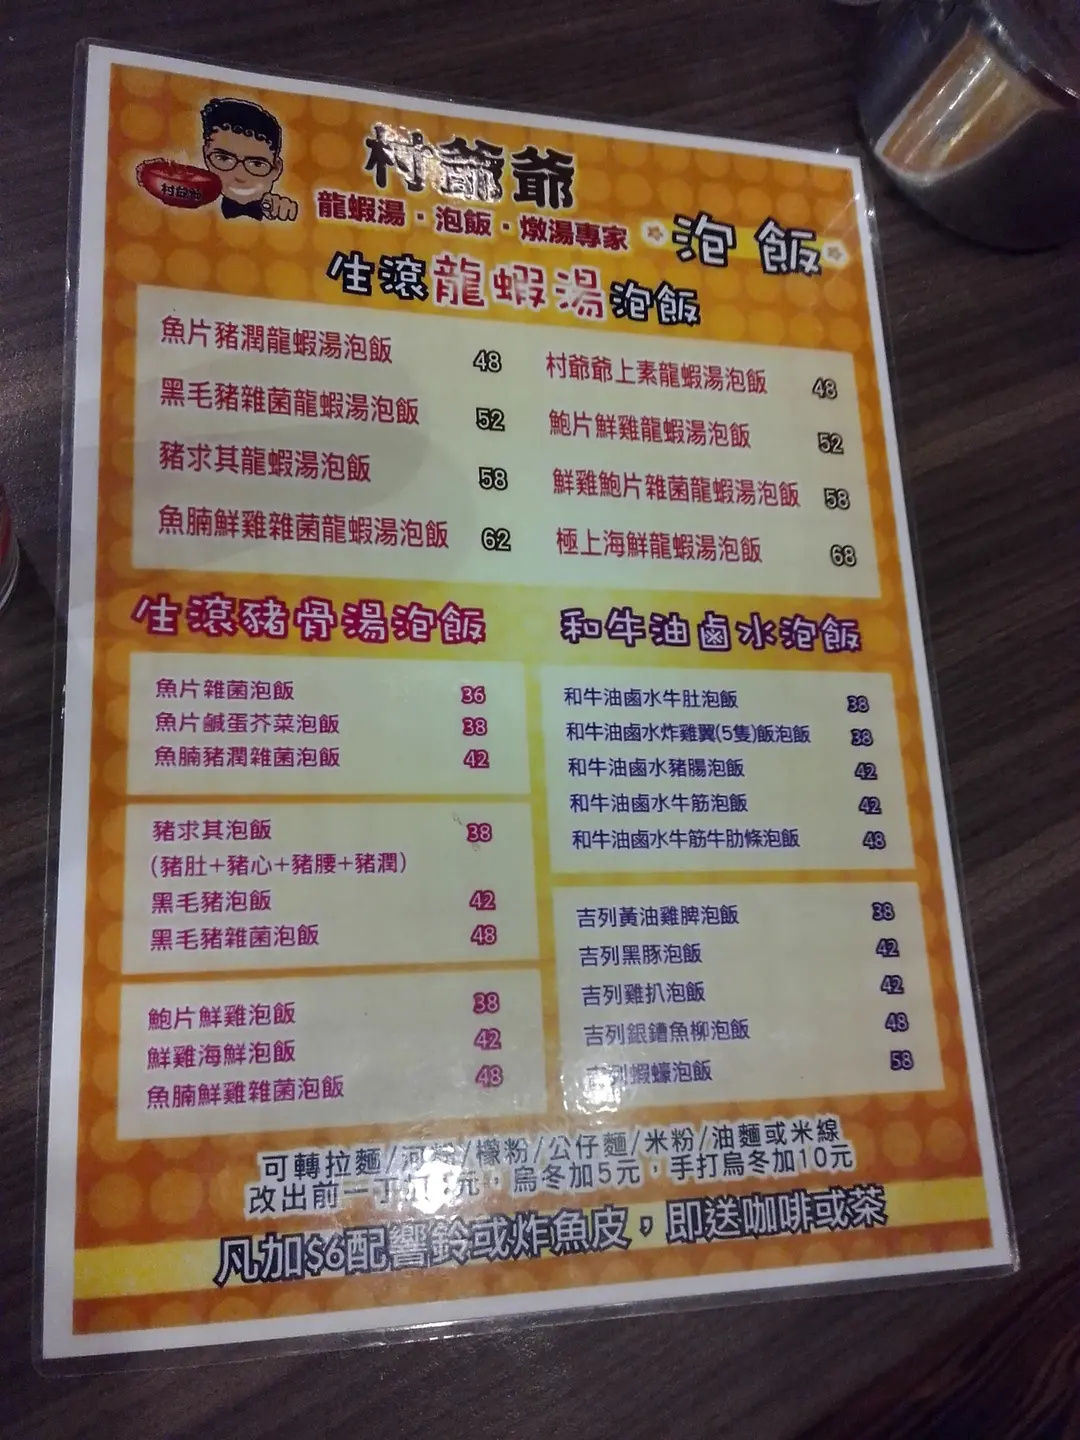 村爺爺
村爺爺
龍蝦湯·泡飯·燉湯專家
泡飯
生滾龍蝦湯泡飯
魚片豬潤龍蝦湯泡飯 48
黑毛豬雜菌龍蝦湯泡飯 52
豬求其龍蝦湯泡飯 58
魚腩鮮雞雜菌龍蝦湯泡飯 62
村爺爺上素龍蝦湯泡飯 48
鮑片鮮雞龍蝦湯泡飯 52
鮮雞鮑片雜菌龍蝦湯泡飯 58
極上海鮮龍蝦湯泡飯 68
生滾豬骨湯泡飯
魚片雜菌泡飯 36
魚片鹹蛋芥菜泡飯 38
魚腩豬潤雜菌泡飯 42
豬求其泡飯 38
(豬肚+豬心+豬腰+豬潤)
黑毛豬泡飯 42
黑毛豬雜菌泡飯 48
鮑片鮮雞泡飯 38
鮮雞海鮮泡飯 42
魚腩鮮雞雜菌泡飯 48
和牛油鹵水泡飯
和牛油鹵水牛肚泡飯 38
和牛油鹵水炸雞翼(5隻)飯泡飯 38
和牛油鹵水豬腸泡飯 42
和牛油鹵水牛筋泡飯 42
和牛油鹵水牛筋牛肋條泡飯 48
吉列黃油雞脾泡飯 38
吉列黑豚泡飯 42
吉列雞扒泡飯 42
吉列銀鱈魚柳泡飯 48
吉列蝦蠔泡飯 58
可轉拉麵/河粉/檬粉/公仔麵/米粉/油麵或米線
改出前一丁加 元，烏冬加5元，手打烏冬加10元
凡加$6配響鈴或炸魚皮，即送咖啡或茶